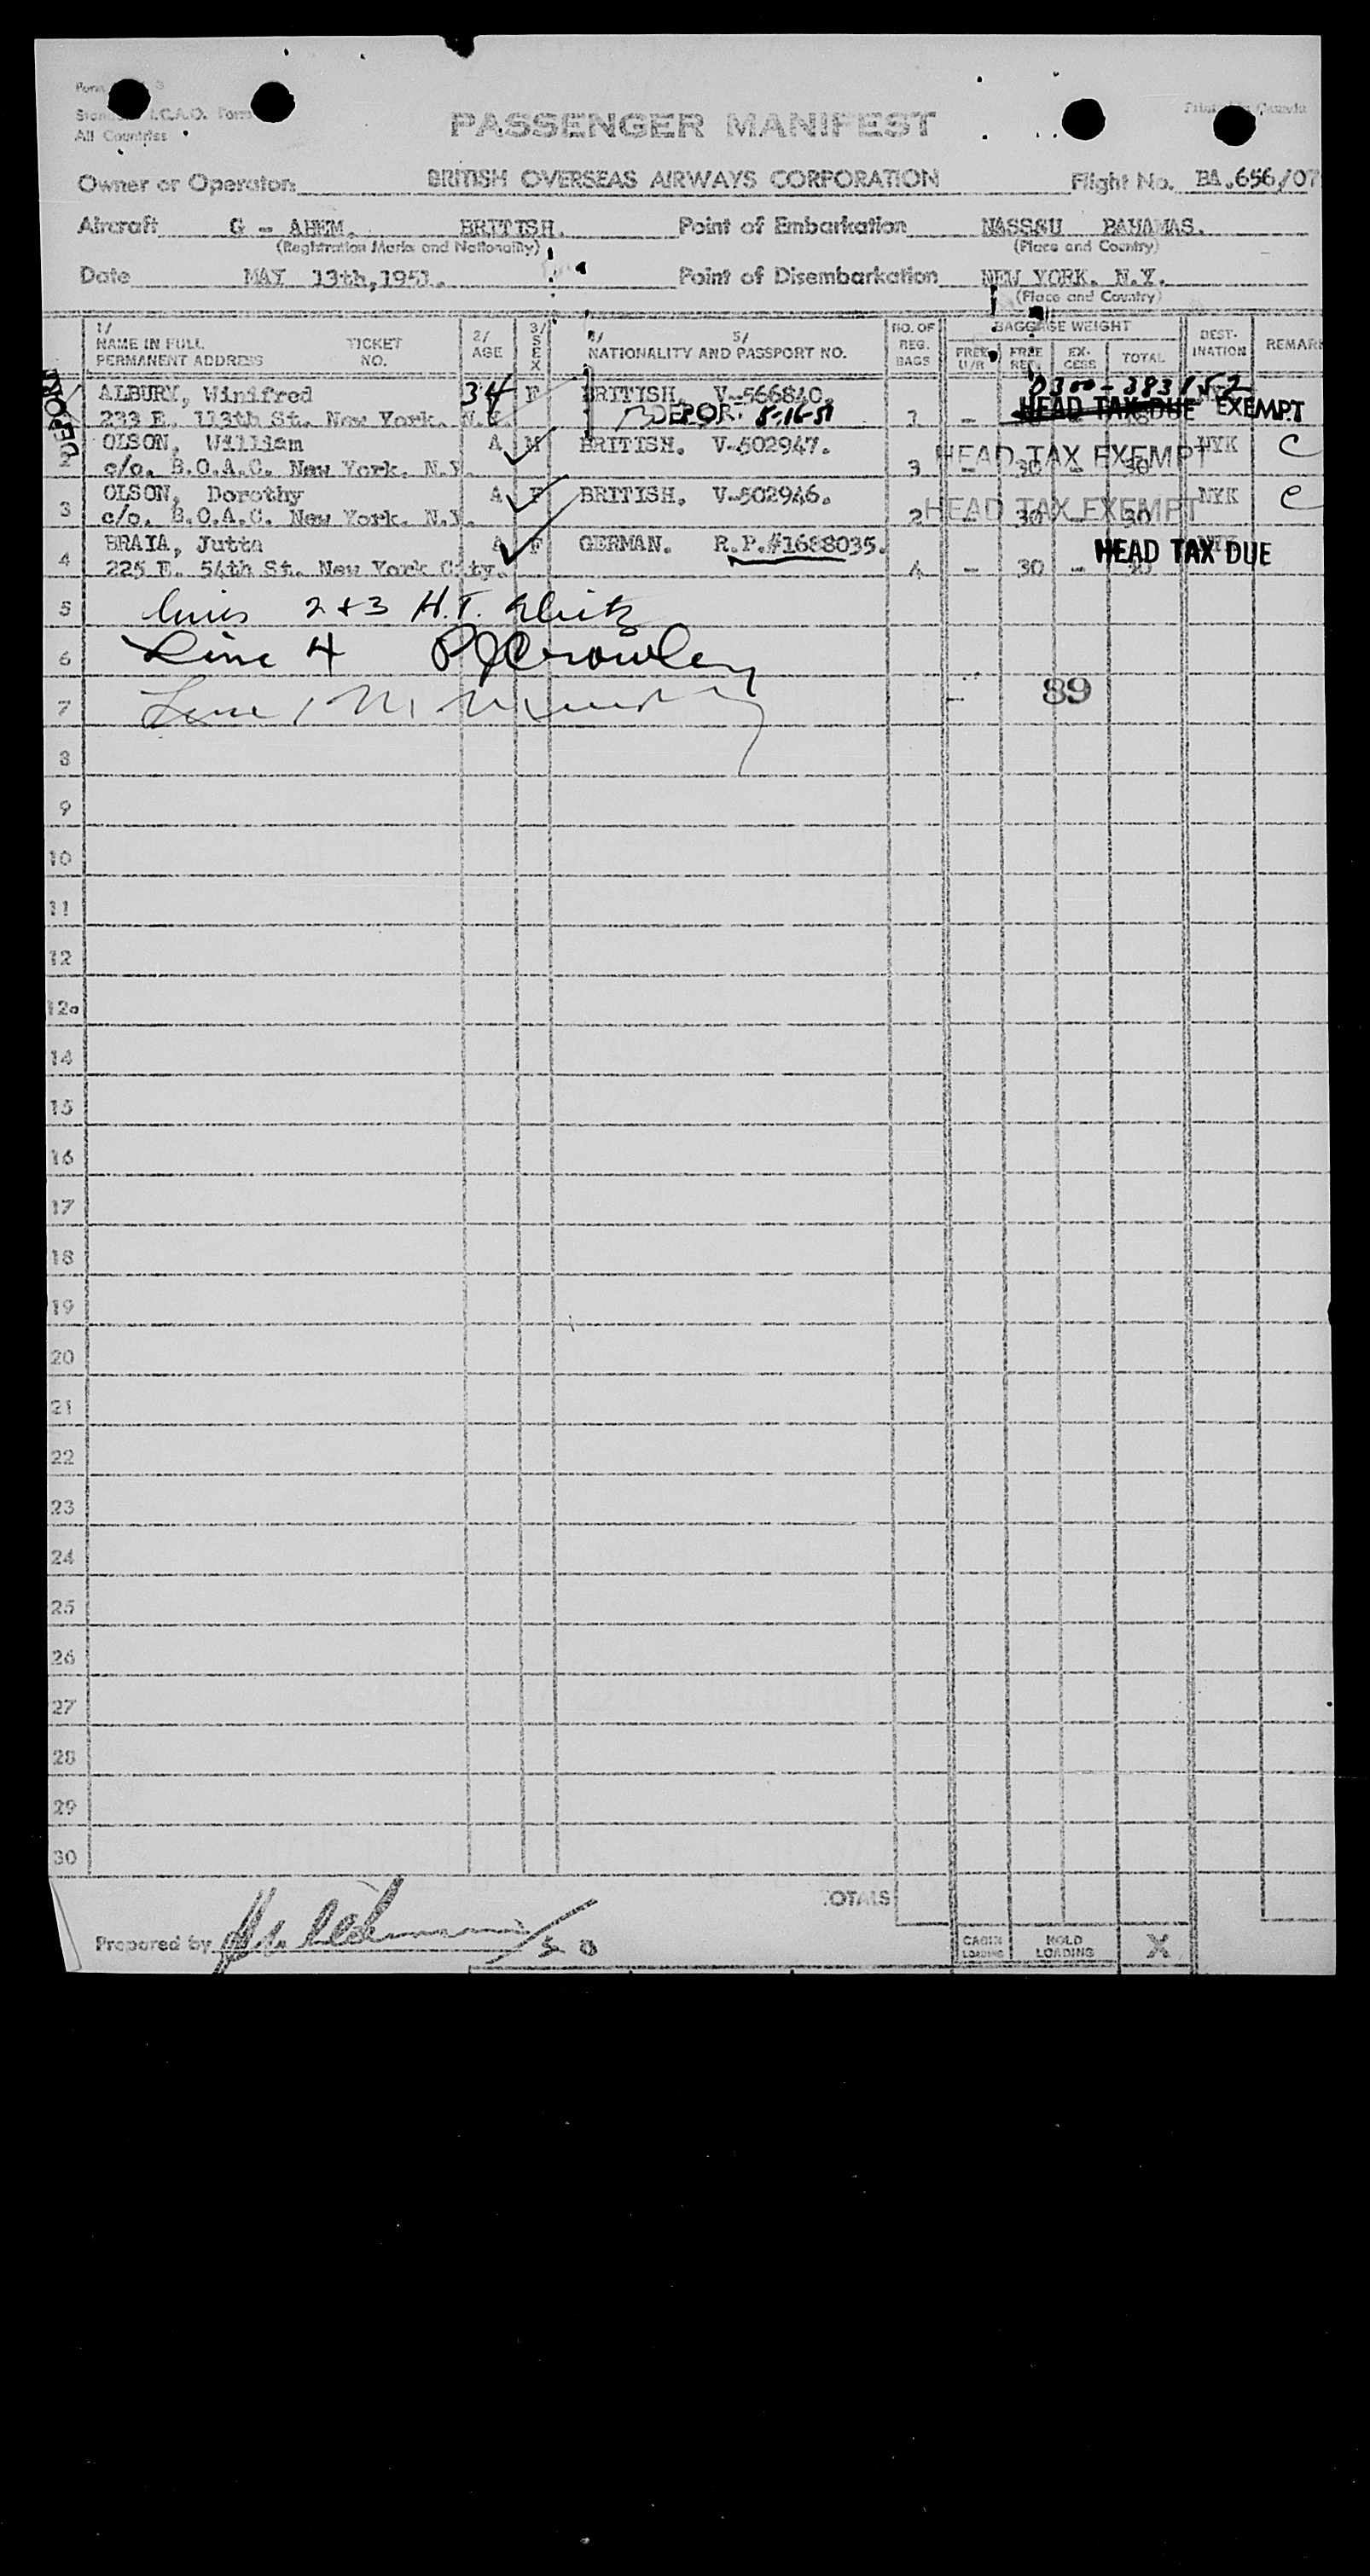 Form 3
I.C.A.O. Form
All Countries
Printed in Canada
PASSENGER MANIFEST
Owner or Operator BRITISH OVERSEAS AIRWAYS CORPORATION Flight No. BA.656/07
Aircraft G - AHEM. BRITISH. Point of Embarkation NASSAU BAHAMAS.
(Registration Marks and Nationality) (Place and Country)
Date MAY 13th,1951. Point of Disembarkation NEW YORK. N.Y.
(Place and Country)
1/ NAME IN FULL PERMANENT ADDRESS TICKET NO. 2/ AGE 3/ SEX 4/ 5/ NATIONALITY AND PASSPORT NO. NO. OF REG. BAGS BAGGAGE WEIGHT FREE U/R FREE REG. EX-CESS TOTAL DEST-INATION REMARK
0300-383152
ALBURY, Winifred 34 F BRITISH. V-566840.
233 E. 113th St. New York. N.Y. DEPOR. 5-16-51 1 - HEAD TAX DUE EXEMPT
DEPORTED
2 OLSON, William A M BRITISH. V-502947. NYK C
c/o. B.O.A.C. New York. N.Y. 3 - 30 - 30 HEAD TAX EXEMPT
3 OLSON, Dorothy A F BRITISH. V-502946. NYK C
c/o. B.O.A.C. New York. N.Y. 2 - 30 - 30 HEAD TAX EXEMPT
4 BRAIA, Jutta A F GERMAN. R.P.#1688035. HEAD TAX DUE
225 E. 54th St. New York City. 4 - 30 -
5 Lines 2 & 3 H.T.
6 Line 4 PJCrowley
7 Line 1 M 89
8
9
10
11
12
12a
14
15
16
17
18
19
20
21
22
23
24
25
26
27
28
29
30
TOTALS
Prepared by
CABIN LOADING HOLD LOADING X